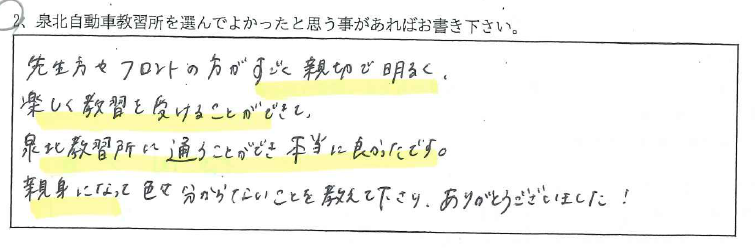 2、泉北自動車教習所を選んでよかったと思う事があればお書き下さい。
先生方やフロントの方がすごく親切で明るく、
楽しく教習を受けることができて、
泉北教習所に通うことができ本当に良かったです。
親身になって色々分からないことを教えて下さり、ありがとうございました！